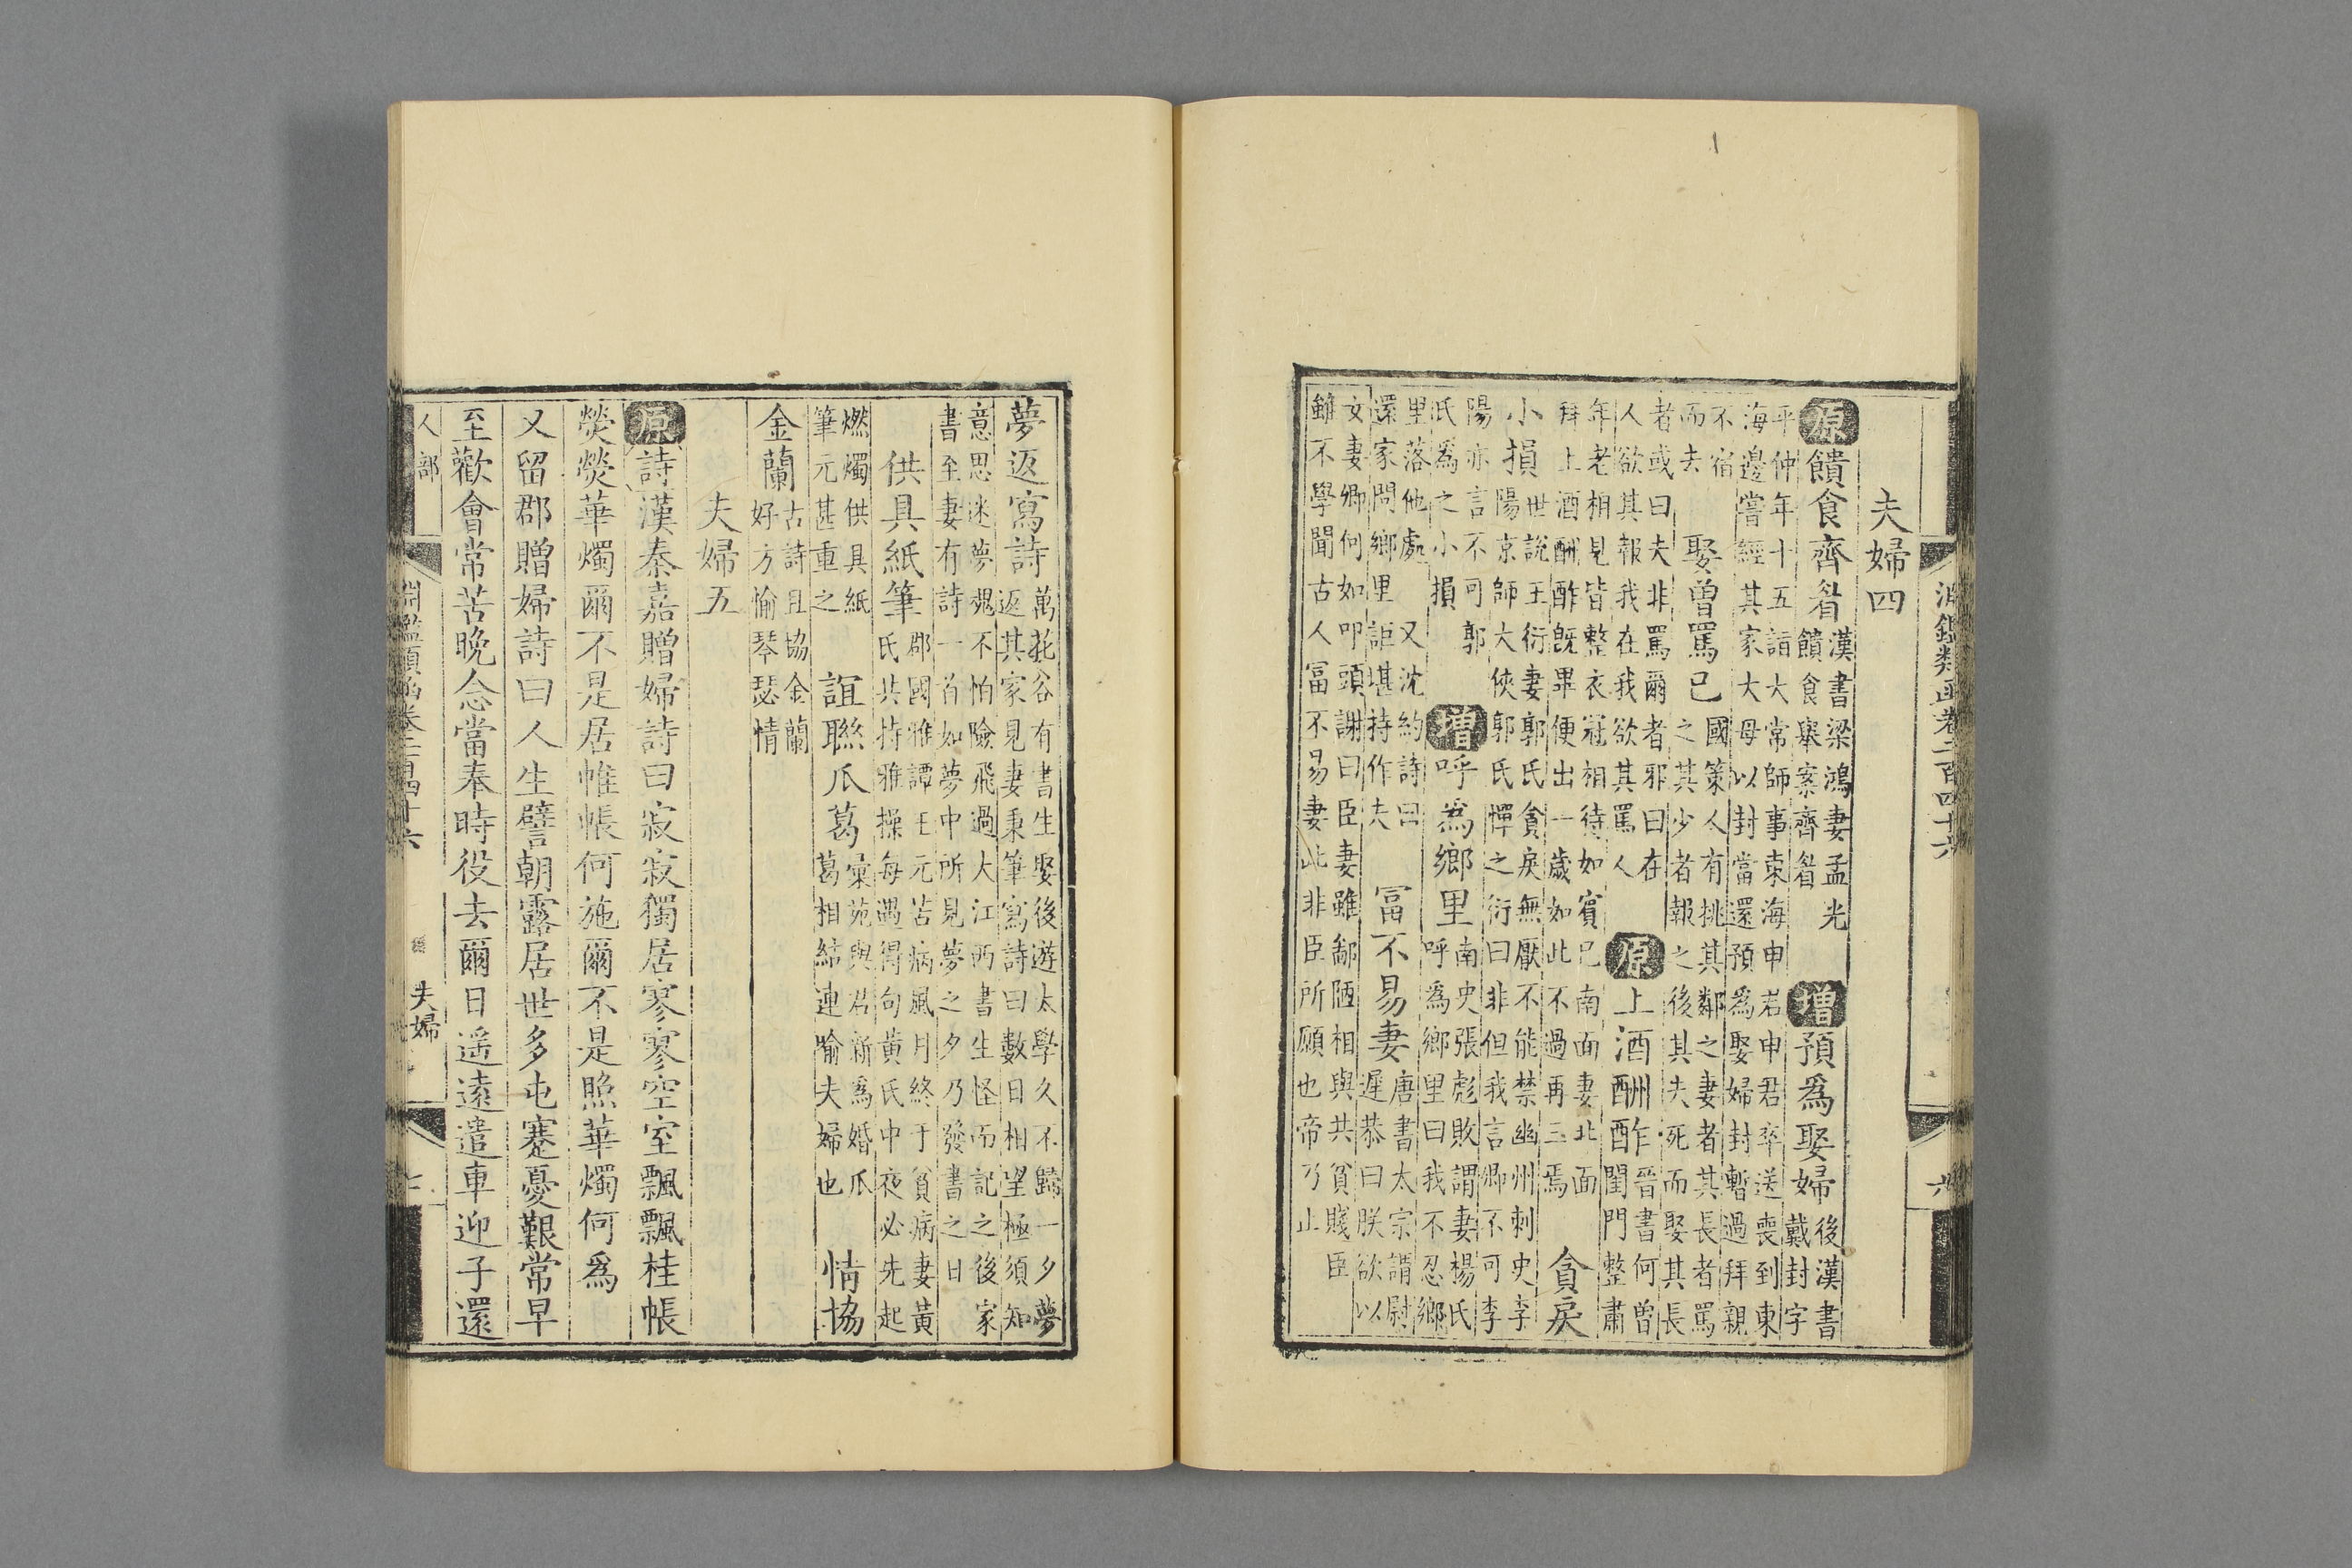 淵鑑類函卷二百四十六 六
夫婦四
原饋食齊眉
漢書梁鴻妻孟光
饋食舉案齊眉
增預爲娶婦
後漢書
戴封字
平仲年十五詣大常師事東海申君申君卒送喪到東
海邊嘗經其家大母以封當還預爲娶婦封暫過拜親
不宿
而去
娶曾罵己
國策人有挑其鄰之妻者其長者罵
之其少者報之後其夫死而娶其長
者或曰夫非罵爾者邪曰在
人欲其報我在我欲其罵人
原上酒酬酢
晉書何曾
閨門整肅
年老相見皆整衣冠相待如賓己南面妻北面
拜上酒酬酢旣畢便出一歲如此不過再三焉
貪戾
小損
世說王衍妻郭氏貪戾無厭不能禁幽州刺史李
陽京師大俠郭氏憚之衍曰非但我言卿不可李
陽亦言不可郭
氏爲之小損
增呼爲鄉里
南史張彪敗謂妻楊氏
呼爲鄉里曰我不忍鄉
里落他處 又沈約詩曰
還家問鄉里詎堪持作夫
冨不易妻
唐書太宗謂尉
遲恭曰朕欲以
女妻卿何如叩頭謝曰臣妻雖鄙陋相與共貧賤臣
雖不學聞古人冨不易妻此非臣所願也帝乃止
夢返寫詩
萬花谷有書生娶後遊太學久不歸一夕夢
返其家見妻秉筆寫詩曰數日相望極須知
意思迷夢魂不怕險飛過大江西書生怪而記之後家
書至妻有詩一首如夢中所見夢之夕乃發書之日
供具紙筆
郡國雅譚王元苦病風月終于貧病妻黃
氏共持雅操每遇得句黃氏中夜必先起
燃燭供具紙
筆元甚重之
誼聯瓜葛
彙苑與君新爲婚瓜
葛相結連喻夫婦也
情協
金蘭
古詩且協金蘭
好方愉琴瑟情
夫婦五
原詩漢秦嘉贈婦詩曰寂寂獨居寥寥空室飄飄桂帳
熒熒華燭爾不是居帷帳何施爾不是照華燭何爲
又留郡贈婦詩曰人生譬朝露居世多屯蹇憂艱常早
至歡會常苦晚念當奉時役去爾日遥遠遣車迎子還
人部 淵鑑類函卷二百四十六 夫婦 七